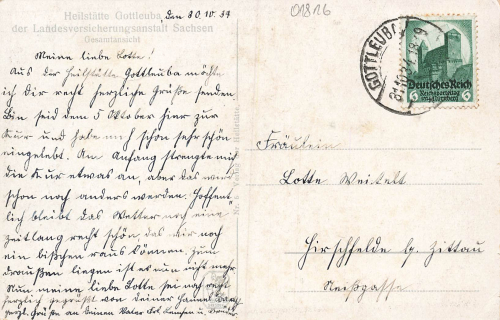 Heilstätte Gottleuba
der Landesversicherungsanstalt Sachsen
Gesamtansicht
den 30.10.34
Meine liebe Lotte!
Aus der Heilstätte Gottleuba möchte
ich Dir recht herzliche Grüße senden.
Bin seid dem 5 Oktober hier zur
Kur und habe mich schon sehr schön
eingelebt. Am Anfang strengte mich
die Kur etwas an, aber das wird
schon noch anders werden. Hoffent-
lich bleibt das Wetter noch eine
zeitlang recht schön das wir noch
ein bißchen raus können. Zum
draußen liegen ist es nun nicht mehr
Nun meine liebe Lotte sei noch recht
herzlich gegrüßt von Deiner
herzl. Grüße an Deinen Vater
01816
GOTTLEUBA
Deutsches Reich
Reichsparteitag
1934 Nürnberg
6 6
Fräulein
Lotte
Hirschfelde by Zittau
Neißgasse